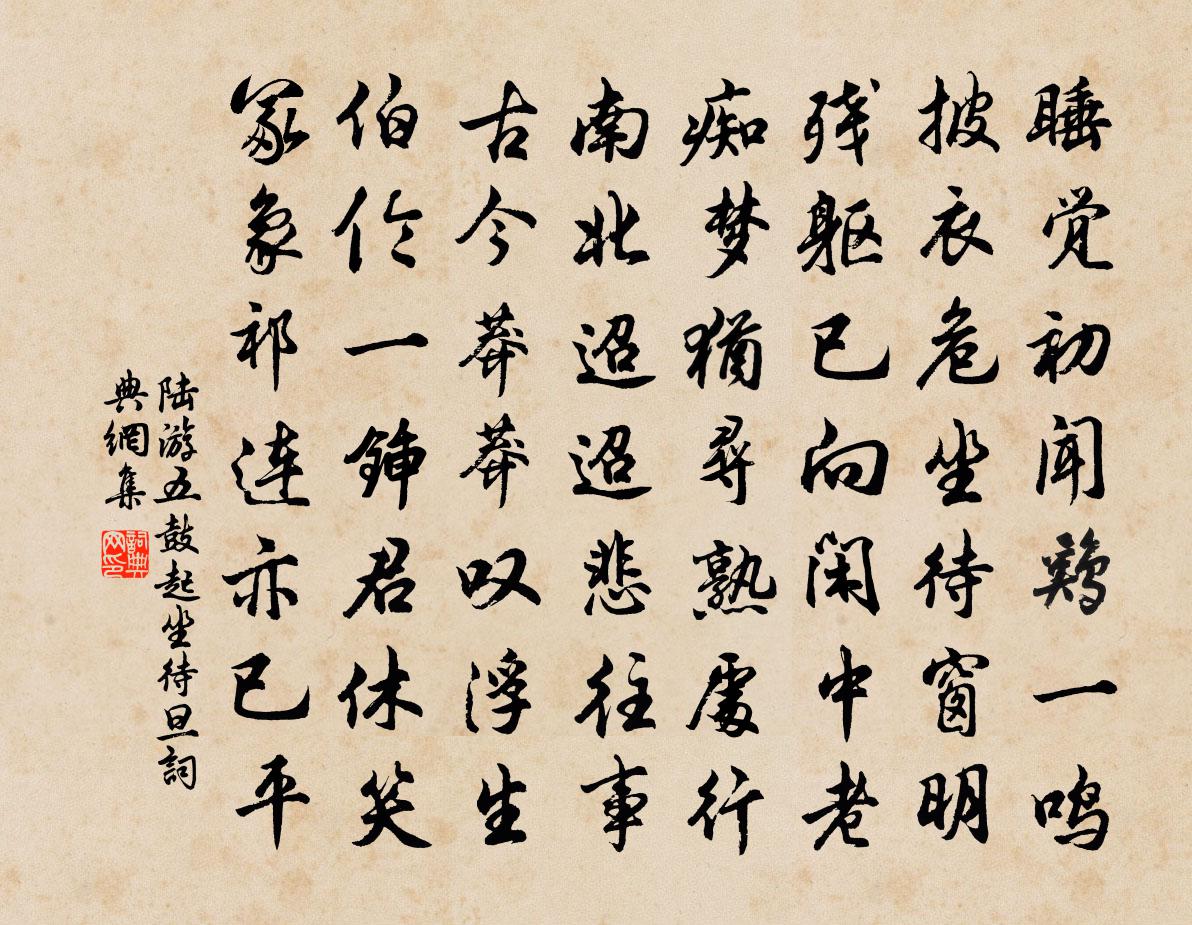 睡觉初闻鷄一鸣
披衣危坐待窗明
残躯已向闲中老
痴梦犹寻熟處行
南北迢迢悲往事
古今莽莽叹浮生
伯伦一锸君休笑
冢象祁连亦已平
陆游五鼓起坐待旦詞
典網集
詞典网印